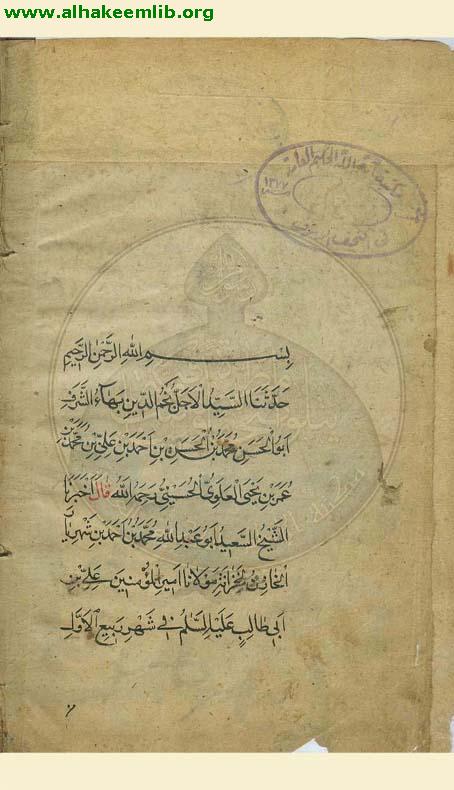 www.alhakeemlib.org
مكتبة آية الله الحكيم العامة
١٣٧٧
في النجف الاشرف
بسم الله الرحمن الرحيم
حَدَّثَنَا السَّيِّدُ الْاَجَلُّ نَجْمُ الدِّينِ بَهَاءُ الشَّرَفِ
اَبُو الْحَسَنِ مُحَمَّدُ بْنُ الْحَسَنِ بْنِ اَحْمَدَ بْنِ عَلِيِّ بْنِ مُحَمَّدِ بْنِ
عُمَرَ بْنِ يَحْيَى الْعَلَوِيُّ الْحُسَيْنِيُّ رَحِمَهُ اللهُ قَالَ اَخْبَرَنَا
الشَّيْخُ السَّعِيدُ اَبُو عَبْدِ اللهِ مُحَمَّدُ بْنُ اَحْمَدَ بْنِ شَهْرِيَارَ
الْخَازِنُ لِخِزَانَةِ مَوْلَانَا اَمِيرِ الْمُؤْمِنِينَ عَلِيِّ بْنِ
اَبِي طَالِبٍ عَلَيْهِ السَّلَمُ فِي شَهْرِ رَبِيعِ الْاَوَّلِ